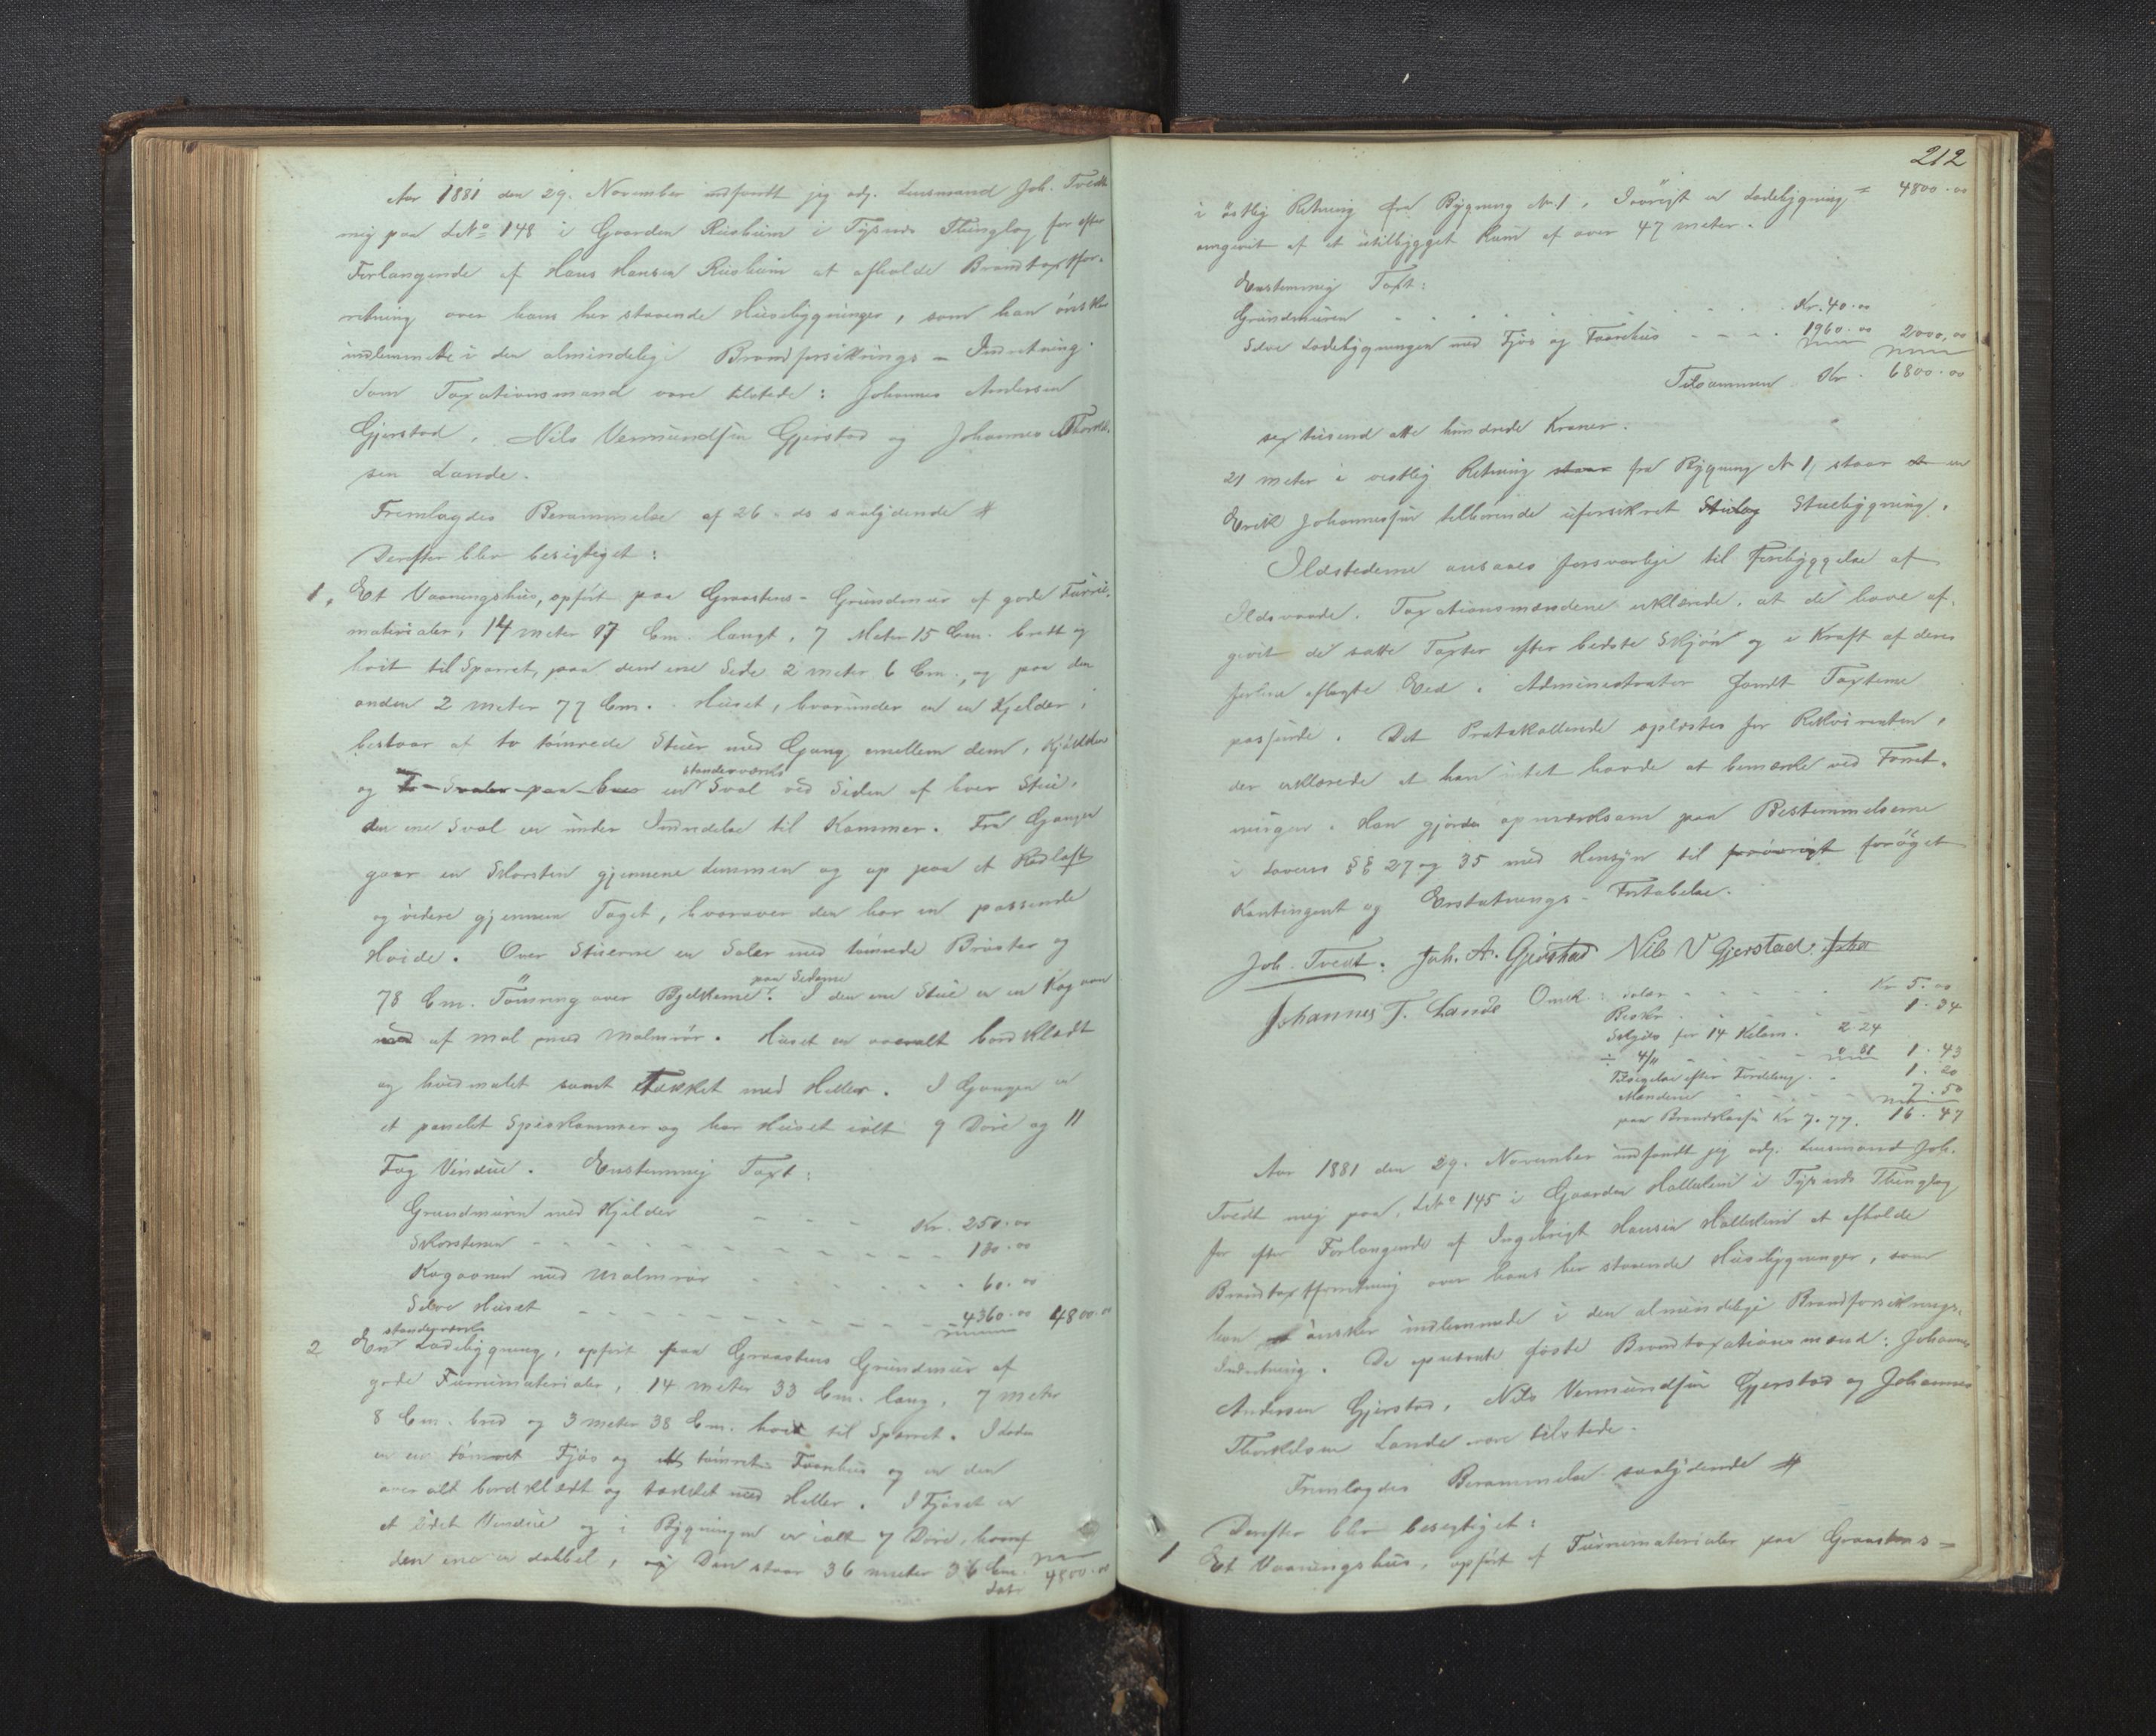 Aar 1881 den 29. November indfandt jeg adj. Lensmand Joh. Tvedt
mig paa LNo 148 i Gaarden Riisheim i Tysnes Thinglag for efter
Forlangende af Hans Hansen Riisheim at afholde Brandtaxtfor-
retning over hans her staaende Huusbygninger, som han ønsker
indlemmede i den almindelige Brandforsikrings-Indretning.
Som Taxationsmænd vare tilstede: Johannes Andersen
Gjerstad, Nils Vermundsen Gjerstad og Johannes Thorkild-
sen Lande.
Fremlagdes Berammelse af 26 ds saalydende #
Derefter blev besigtiget:
1. Et Vaaningshus, opført paa Graastens-Grundmur af gode Furru-
materialer, 14 meter 17 Cm. langt, 7 Meter 15 Cm. bredt og
høit til Sparret, paa den ene Side 2 meter 6 Cm., og paa den
anden 2 meter 77 Cm. Huset, hvorunder er en Kjelder,
bestaar af to tømrede Stuer med Gang emellem dem, Kjøkken
og To Svaler paa hver en standerværks Sval ved Siden af hver Stue,
den ene Sval er under Indredelse til Kammer. Fra Gangen
gaar en Skorsten gjennem Lemmen og op paa et Rødloft
og videre gjennem Taget, hvorover den har en passende
Høide. Over Stuerne er Saler med tømrede Brøster og
78 Cm. Tømring over Bjelkerne paa Siderne. I den ene Stue er en Kogovn
med af Mal med Malmrør. Huset er overalt bordklædt
og hvidmalet samt Tækket med Heller. I Gangen er
et panelet Spiskammer og har Huset ialt 9 Døre og 11
Fag Vinduer. Enstemmig Taxt:
Grundmuren med Kjelder - - - Kr. 250.00
Skorstenen - - - - - - - 180.00
Kogovnen med Malmrør - - - - - 60.00
Selve Huset - - - - - - 4360.00 4800.00
2 En standerværks Ladebygning, opført paa Graastens Grundmur af
gode Furumaterialer, 14 meter 33 Cm. lang, 7 meter
8 Cm. bred og 3 meter 38 Cm. høi til Sparret. I Laden
er en tømret Fjøs og et tømret Faarehus og er den
overalt bordklædt og tækket med Heller. I Fjøset er
et lidet Vindue og i Bygningen er ialt 7 Døre, hvoraf
den ene er dobbel, og Den staar 36 meter 36 Cm.
Latr. 4800.00
212
i østlig Retning fra Bygning No. 1. Iøvrigt er Ladebygning 4800.00
omgivet af et utilbygget Rum af over 47 meter.
Enstemmig Taxt:
Grundmuren - - - - - - Kr. 40.00
Selve Ladebygningen med Fjøs og Faarehus - - - 1960.00 2000,00
Tilsammen Kr. 6800.00
sex tusend otte hundrede Kroner.
21 meter i vestlig Retning staar fra Bygning No 1, staar en
Erik Johannessen tilhørende uforsikret Stueb Stuebygning.
Ildstederne ansaaes forsvarlige til Forebyggelse af
Ildsvaade. Taxationsmændene erklærede, at de have af-
givet de satte Taxter efter bedste Skjøn og i Kraft af deres
forhen aflagte Eed. Administrator fandt Taxterne
passende. Det Protokollerede oplæstes for Rekvirenten,
der erklærede at han intet havde at bemærke ved Forret-
ningen. Han gjordes opmærksom paa Bestemmelserne
i Lovens §§ 27 og 35 med Hensyn til forøvrigt forøget
Kontingent og Erstatnings-Fortabelse.
Joh. Tvedt. Joh. A. Gjerstad Nils V Gjerstad. Joha
Johannes T. Lande Omk.: Salær - - - Kr. 5.00
Beskr. - - - 1.34
Skyds for 14 Kilom. 2.24
÷ 4/11 - - - 0.81 1.43
Tilsigelse efter Fordeling. - 1.20
Mændene - - - 7.50
paa Brandkassen Kr 7.77. 16.47
Aar 1881 den 29. November indfandt jeg adj. Lensmand Joh.
Tvedt mig paa LNo 145 i Gaarden Hatleheim i Tysnes Thinglag
for efter Forlangende af Ingebrigt Hansen Hatleheim at afholde
Brandtaxtforretning over hans her staaende Huusbygninger, som
han ønsker indlemmede i den almindelige Brandforsikrings-
Indretning. De opnævnte faste Brandtaxationsmænd: Johannes
Andersen Gjerstad, Nils Vermundsen Gjerstad og Johannes
Thorkildsen Lande vare tilstede.
Fremlagdes Berammelse saalydende #
Derefter blev besigtiget:
1 Et Vaaningshus, opført af Furumaterialer paa Graastens-